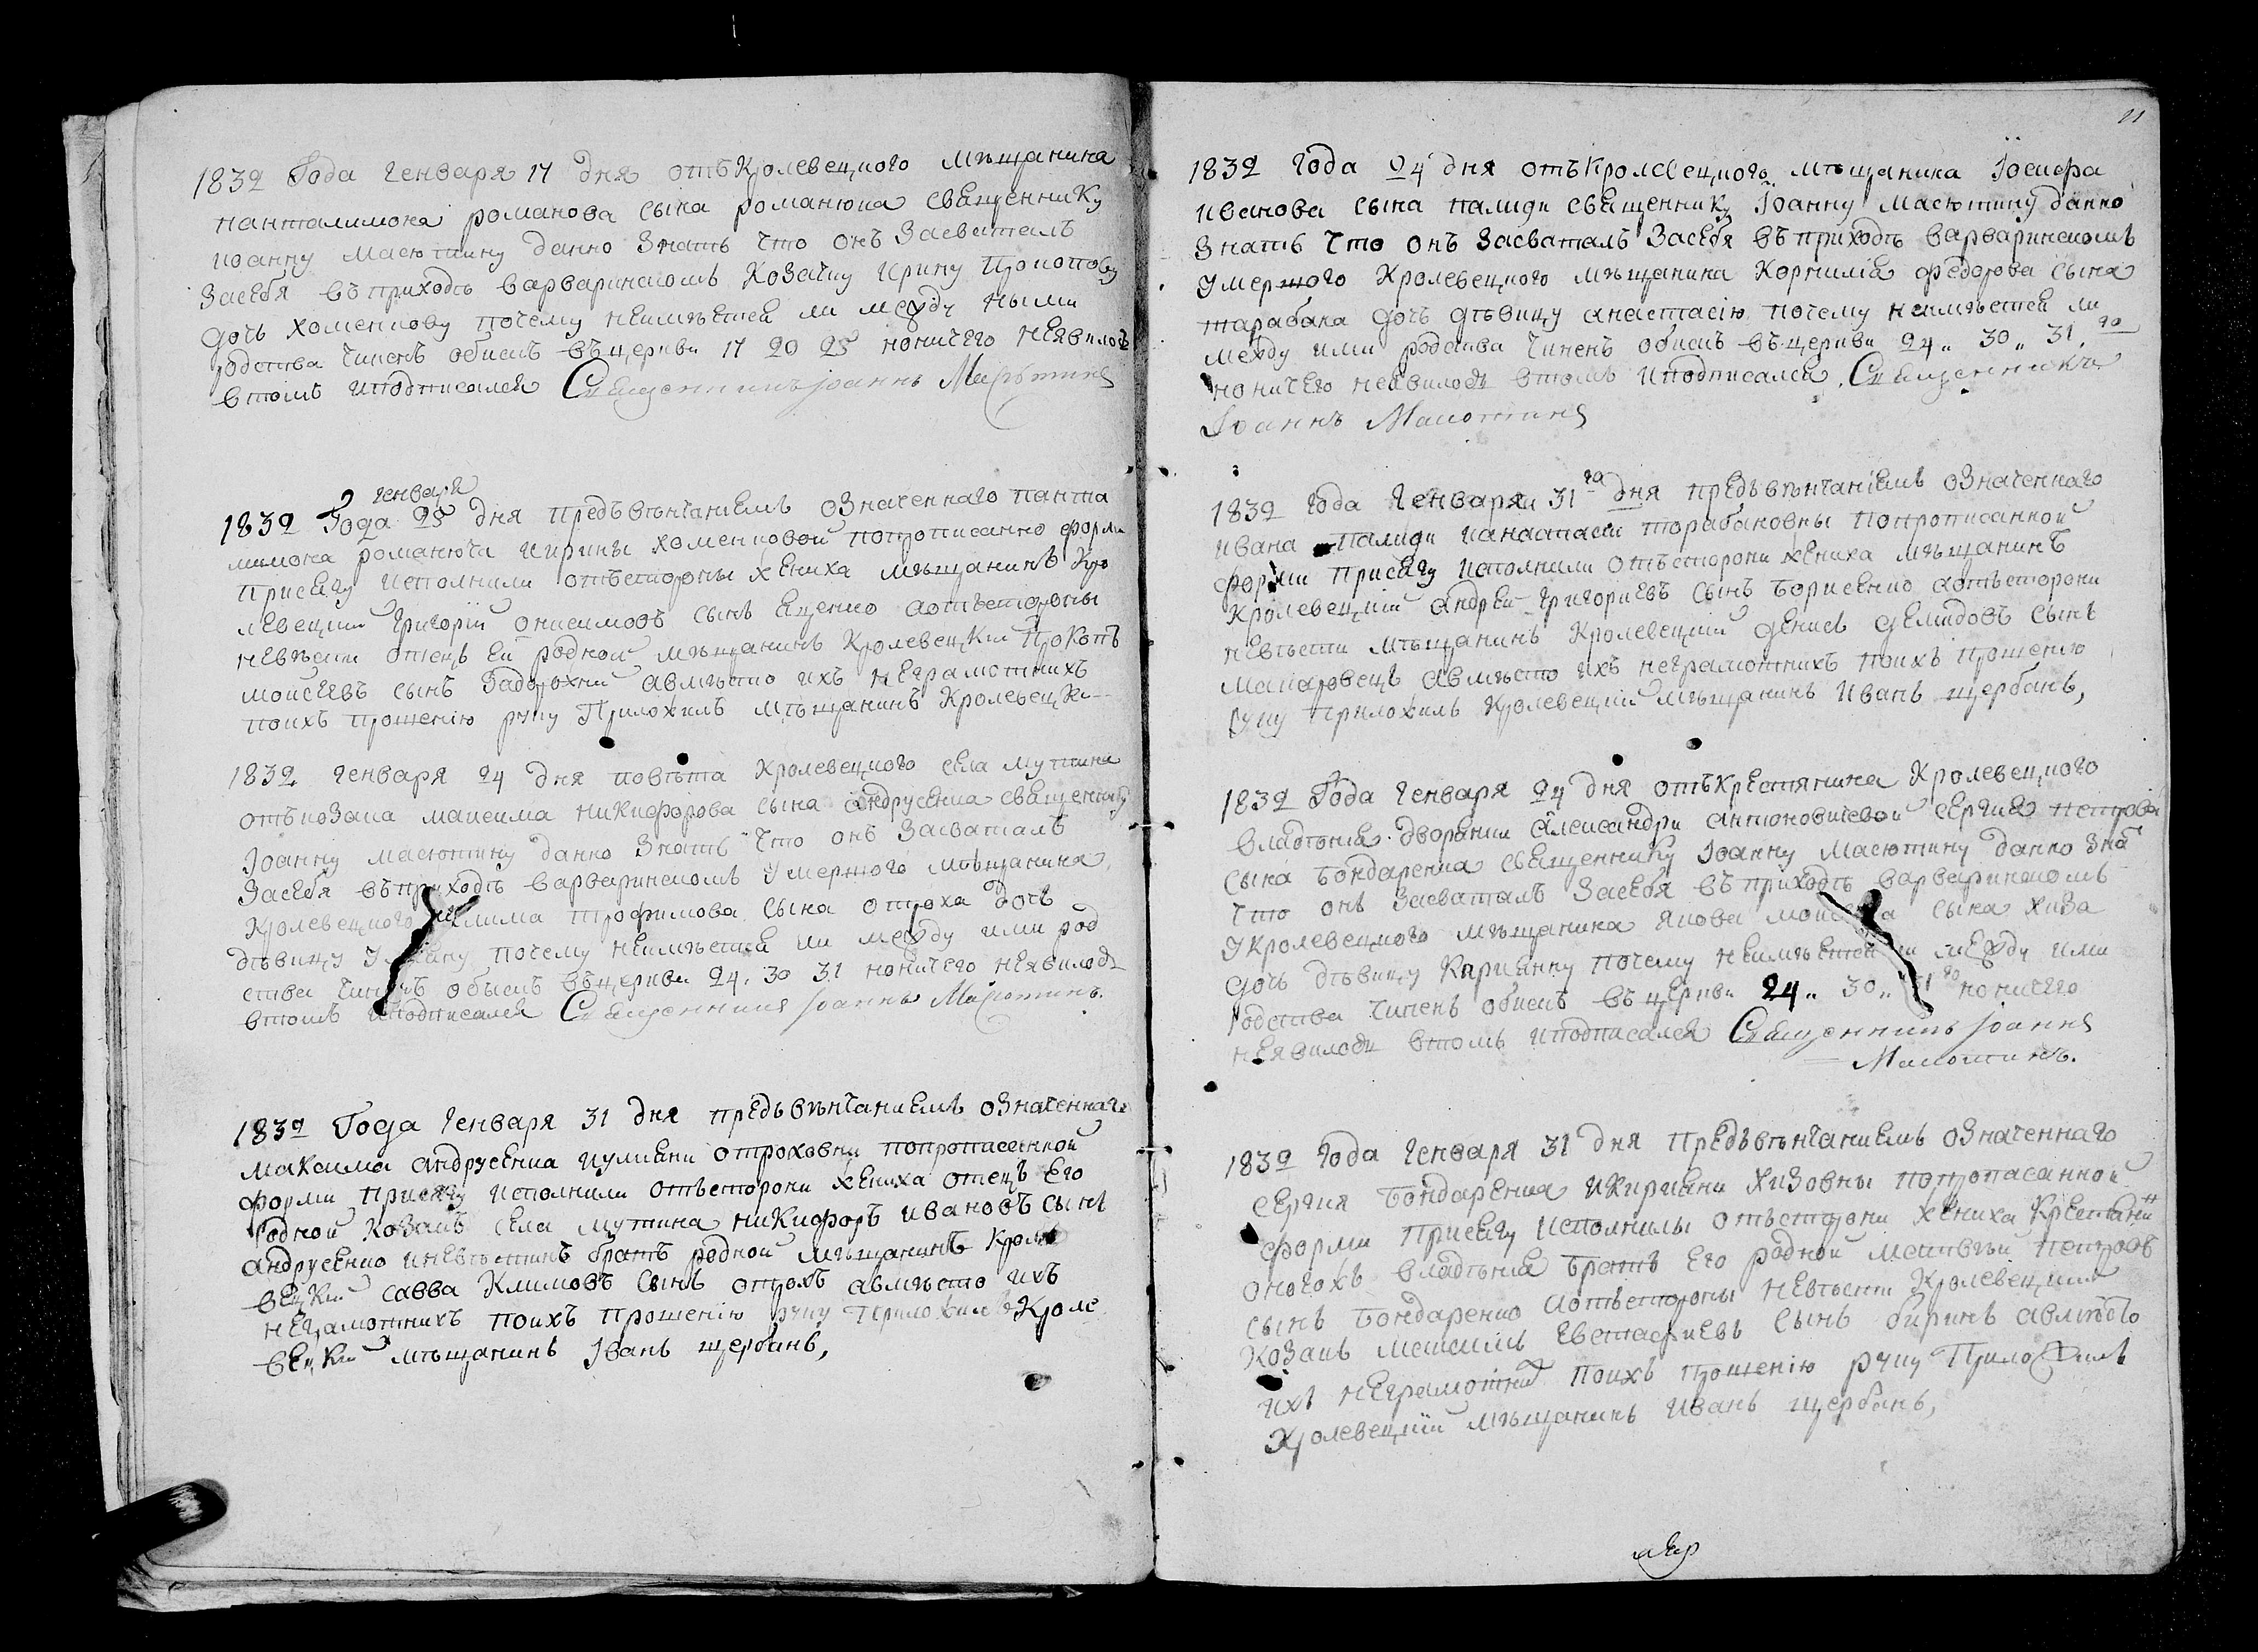 1832 Года Генваря 17 дня отъ Кролевецкого мѣщанина
панталимона романова сына романюка священнику
иоанну масютину данно знать что онъ засваталъ
засебя въ приходѣ варваринскомъ козачку ирину прокопову
дочь хоменкову почему неимѣетсѧ ли между ными
родства чиненъ обискъ въ церкви 17 20 25 но ничего неявилось
втомъ иподписалсѧ Священникъ Іоаннъ Масютинъ
генваря
1832 Года 25 дня предъ вѣнчаниемъ означенного панта
лимона романюка иирины хоменковой попрописанно форми
присягу исполнили отъ стороны жениха мѣщанинъ Кро
левецкий григорій онисимовъ сынъ ященко аотъ стороны
невѣсти отецъ ей родной мѣщанинъ Кролевецкий Прокопъ
моисеевъ сынъ Задорожни авмѣсто ихъ неграмотнихъ
поихъ прошенію руку Приложилъ мѣщанинъ Кролевецки
1832 генваря 24 дня повѣта Кролевецкого села мутина
отъ козака максима никифорова сына андрусенка священнику
Іоанну масютину данно знать что онъ засваталъ
засебя въ приходѣ варваринскомъ умершого мѣщанина
Кролевецкого клима трофимова сына отроха дочь
дѣвицу почему неимѣетсѧ ли между ими род
ства чиненъ обыскъ въ церкви 24. 30 31 но ничего неявилось
втомъ иподписалсѧ Священникъ Іоаннъ Масютинъ.
1832 Года Генваря 31 дня предъ вѣнчаниемъ означенного
максима андрусенка иулияни отроховни попрописанной
форми присягу исполнили отъ сторони жениха отецъ его
родной козакъ села мутина никифоръ ивановъ сынъ
андрусенко братъ родной мѣщанинъ Кроле
вецкий савва Климовъ сынъ отрохъ авмѣсто ихъ
неграмотнихъ поихъ прошенію руку приложилъ Кроле
вецкий мѣщанинъ Іванъ щербань,
11
1832 года 24 дня отъ Кролевецкого мѣщанина Іосифа
иванова сына палиди священнику Іоанну масютину данно
знать что онъ засваталъ засебя въ приходѣ варваринскомъ
умершого Кролевецкого мѣщанина Корнилія федорова сына
тарабана дочь дѣвицу анастасію почему неимѣетсѧ ли
между ими родства чиненъ обискъ въ церкви 24.. 30.. 31. го
но ничего неявилось втомъ иподписалсѧ. Священникъ
Іоаннъ Масютинъ
1832 года Генваря 31 го дня предъ вѣнчаніемъ означенного
ивана палиди ианастасіи торабановны попрописанной
форми присягу исполнили отъ сторони жениха мѣщанинъ
Кролевецкій андрей григориевъ сынъ борисенко аотъ сторони
невѣсти мѣщанинъ Кролевецкий денисъ демидовъ сынъ
макаровецъ авмѣсто ихъ неграмотнихъ поихъ прошению
руку приложилъ Кролевецкий мѣщанинъ иванъ щербань,
1832 Года Генваря 24 дня отъ крестянина Кролевецкого
владѣния дворянки александри антоновичевой сергия петрова
сына бондаренка священнику Іоанну масютину данно зна
что онъ засваталъ засебя въ приходѣ варваринскомъ
укролевецкого мѣщанина якова сына хиза
дочь дѣвицу Кириянну почему неимѣетсѧ ли между ими
родства чиненъ обискъ въ церкви 24.. 30.. 31 го но ничего
неявилось втомъ иподписалсѧ Священникъ Іоаннъ
Масютинъ.
1832 года Генваря 31 дня предъ вѣнчаниемъ означенного
сергия бондаренка икирияни хизовны попрописанной
форми присягу исполнилы отъ сторони жениха крестянин
оногожъ владѣния братъ его родной матвѣй петровъ
сынъ бондаренко иотъ стороны невѣсти Кролевецкий
козакъ максимъ евстафиевъ сынъ биринъ авмѣсто
ихъ неграмотних поихъ прошенію руку Приложилъ
Кролевецкий мѣщанинъ иванъ щербань,